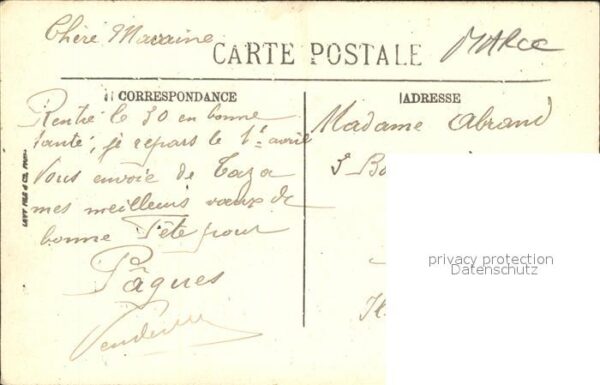 Chère Marraine
CARTE POSTALE
MAROC
CORRESPONDANCE
ADRESSE
Rentré le 30 en bonne
santé, je repars le 1er avril
Vous envoie de Taza
mes meilleurs vœux de
bonne Fête pour
Pâques
Madame Abrand
5 B
LEVY FILS & CIE, PARIS
privacy protection
Datenschutz